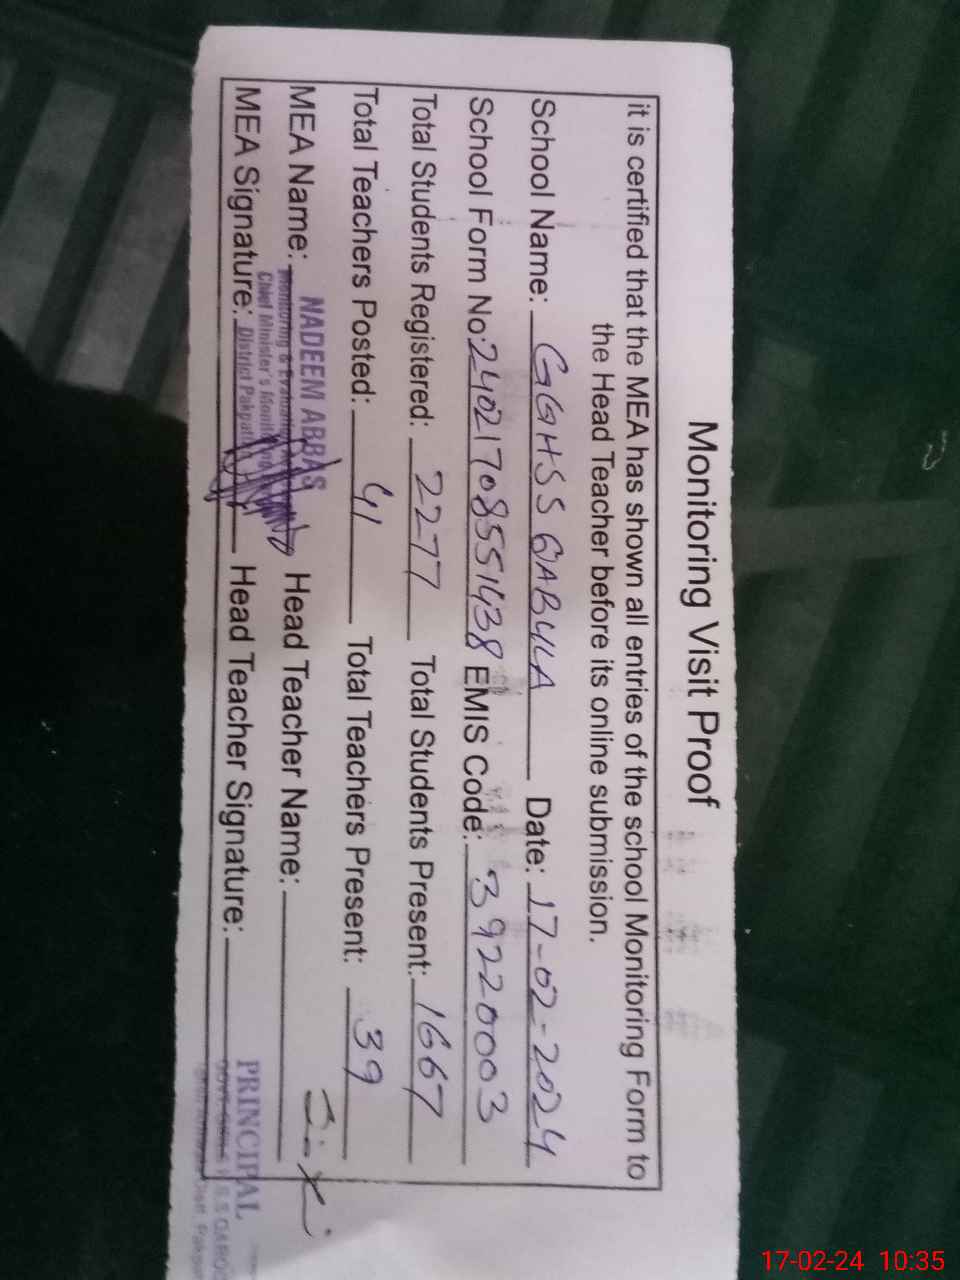 Monitoring Visit Proof
it is certified that the MEA has shown all entries of the school Monitoring Form to
the Head Teacher before its online submission.
School Name: GGHSS QABULA Date: 17-02-2024
School Form No: 24021708551438 EMIS Code: 39220003
Total Students Registered: 2277 Total Students Present: 1667
Total Teachers Posted: 41 Total Teachers Present: 39
MEA Name: NADEEM ABBAS Head Teacher Name:
Monitoring & Evaluation
Chief Minister's
MEA Signature: District Head Teacher Signature:
PRINCIPAL
17-02-24 10:35